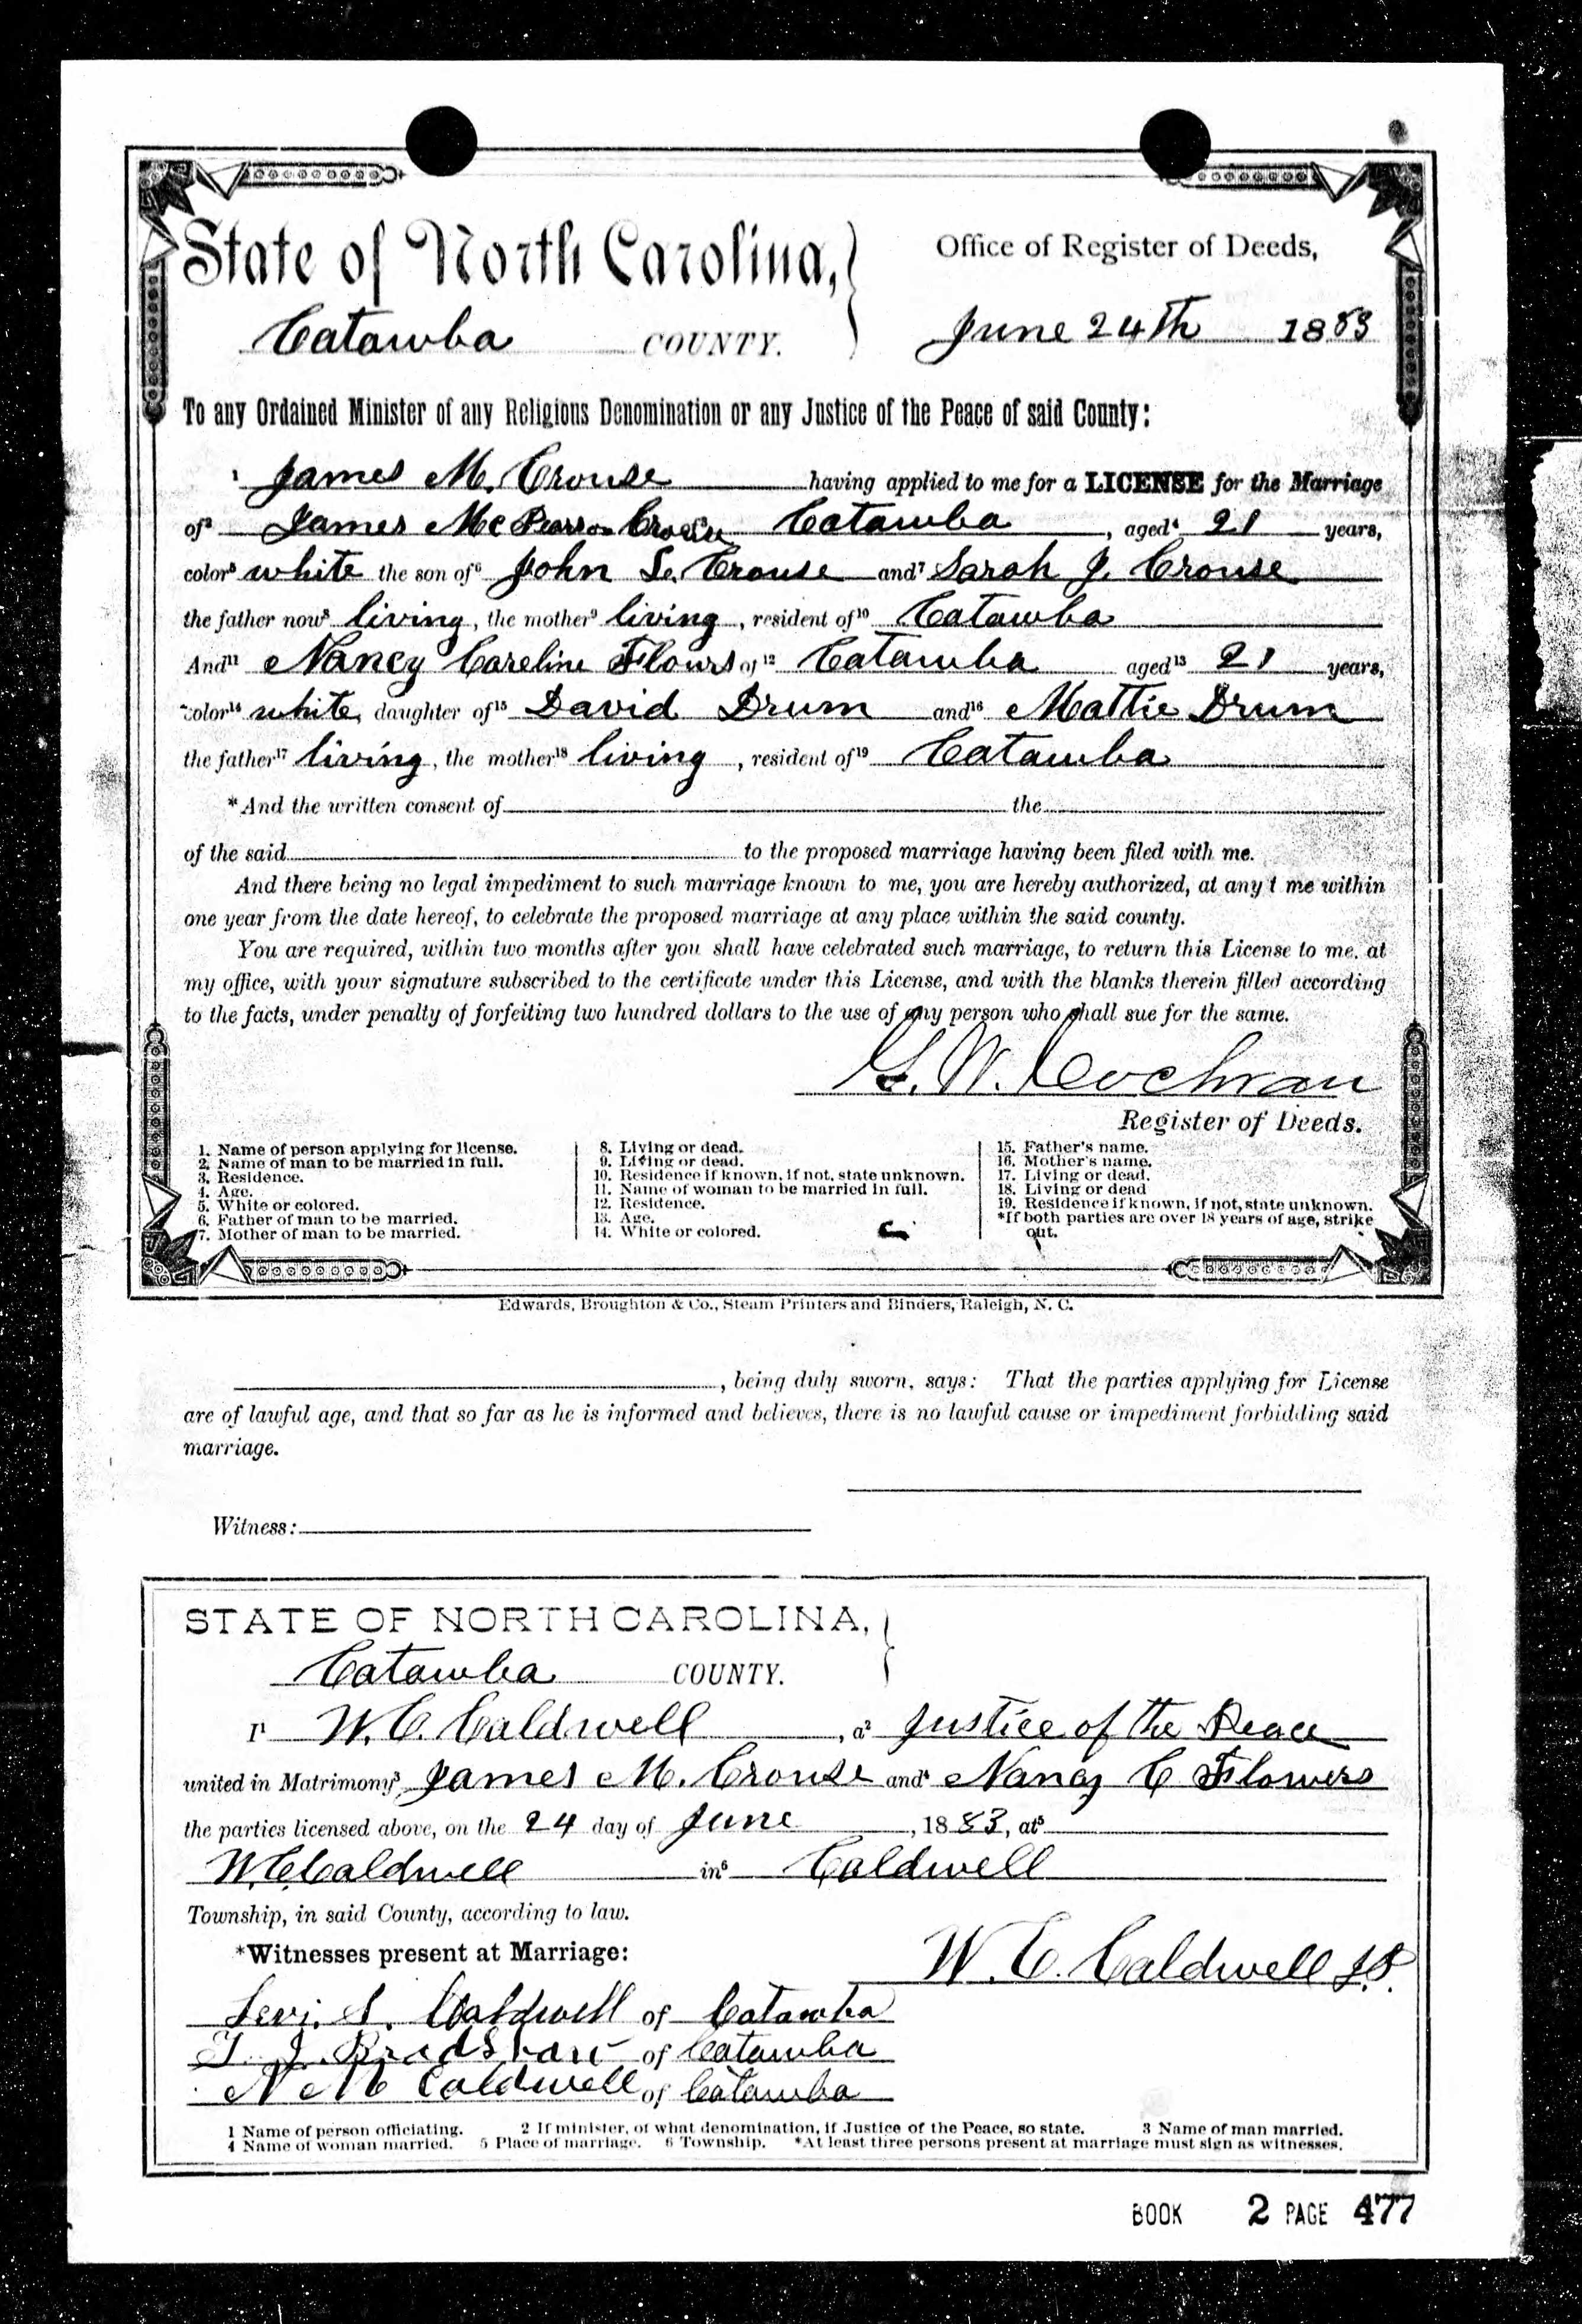 State of North Carolina, Office of Register of Deeds,
Catawba COUNTY. June 24th 1883
To any Ordained Minister of any Religious Denomination or any Justice of the Peace of said County:
1 James M. Crouse having applied to me for a LICENSE for the Marriage
of2 James Mc Crouse Catawba, aged4 21 years,
color5 white the son of6 John S. Crouse and7 Sarah J. Crouse
the father now8 living, the mother9 living, resident of10 Catawba
And11 Nancy Careline Flours of12 Catawba aged13 21 years,
color14 white, daughter of15 David Drum and16 Mattie Drum
the father17 living, the mother18 living, resident of19 Catawba
*And the written consent of the
of the said to the proposed marriage having been filed with me.
And there being no legal impediment to such marriage known to me, you are hereby authorized, at any t me within
one year from the date hereof, to celebrate the proposed marriage at any place within the said county.
You are required, within two months after you shall have celebrated such marriage, to return this License to me, at
my office, with your signature subscribed to the certificate under this License, and with the blanks therein filled according
to the facts, under penalty of forfeiting two hundred dollars to the use of any person who shall sue for the same.
G. W. Cochran
Register of Deeds.
1. Name of person applying for license.
2. Name of man to be married in full.
3. Residence.
4. Age.
5. White or colored.
6. Father of man to be married.
7. Mother of man to be married.
8. Living or dead.
9. Living or dead.
10. Residence if known, if not, state unknown.
11. Name of woman to be married in full.
12. Residence.
13. Age.
14. White or colored.
15. Father's name.
16. Mother's name.
17. Living or dead.
18. Living or dead
19. Residence if known, if not, state unknown.
*If both parties are over 18 years of age, strike
out.
Edwards, Broughton & Co., Steam Printers and Binders, Raleigh, N. C.
, being duly sworn, says: That the parties applying for License
are of lawful age, and that so far as he is informed and believes, there is no lawful cause or impediment forbidding said
marriage.
Witness:
STATE OF NORTH CAROLINA,
Catawba COUNTY.
I1 W. C. Caldwell, a2 Justice of the Peace
united in Matrimony3 James M. Crouse and4 Nancy C Flowers
the parties licensed above, on the 24 day of June, 1883, at5
W. C. Caldwell in6 Caldwell
Township, in said County, according to law.
*Witnesses present at Marriage: W. C. Caldwell J.P.
Levi. S. Caldwell of Catawba
T. J. Bradshaw of Catawba
N M Caldwell of Catawba
1 Name of person officiating. 2 If minister, of what denomination, if Justice of the Peace, so state. 3 Name of man married.
4 Name of woman married. 5 Place of marriage. 6 Township. *At least three persons present at marriage must sign as witnesses.
BOOK 2 PAGE 477